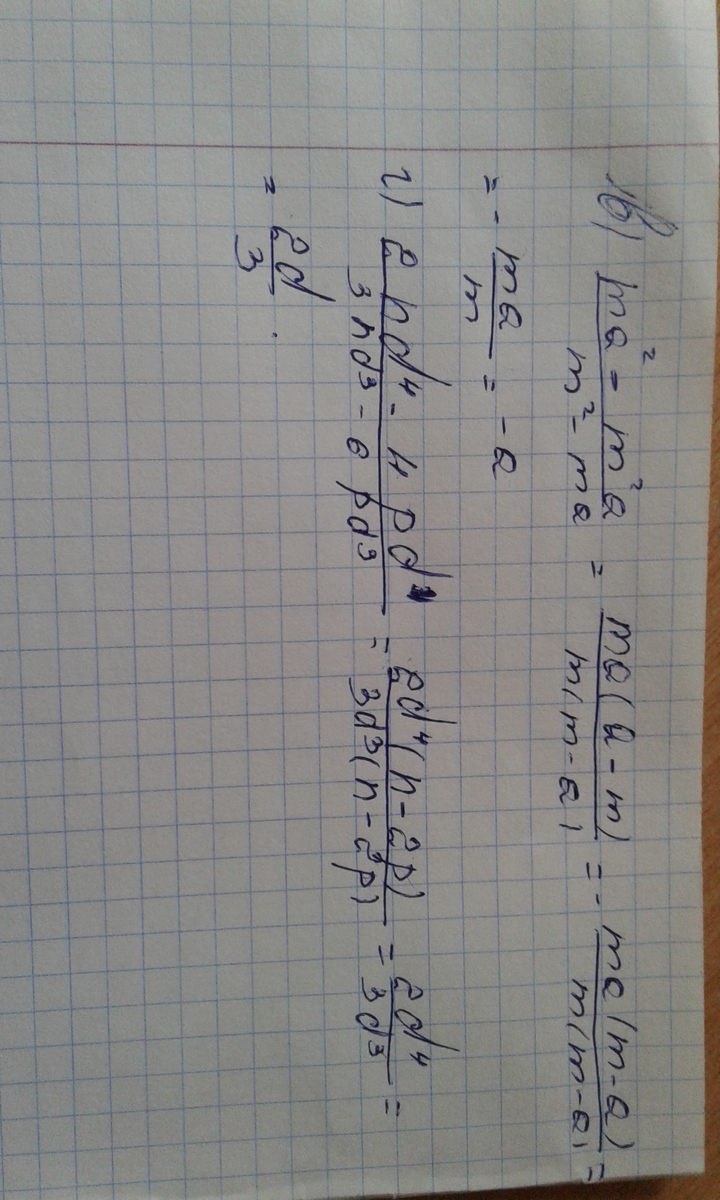 в) (ma² - m²a)/(m² - ma) = (ma(a - m))/(m(m - a)) = - (ma(m - a))/(m(m - a)) =
= - (ma)/(m) = -a
г) (2nd⁴ - 4pd⁴)/(3nd³ - 6pd³) = (2d⁴(n - 2p))/(3d³(n - 2p)) = (2d⁴)/(3d³) =
= (2d)/(3) .